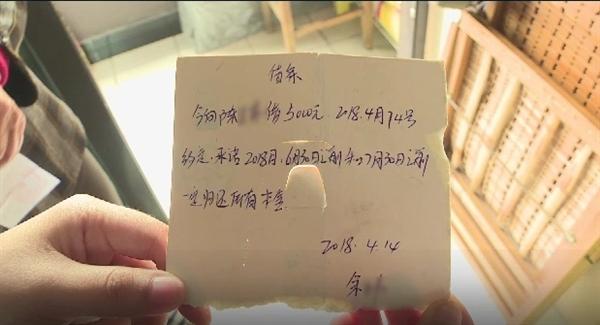 借条
今向陈 借5000元 2018.4月14号
约定,承诺2018月,6月30日之前和7月30日之前
一定归还所有本金
2018.4.14
余